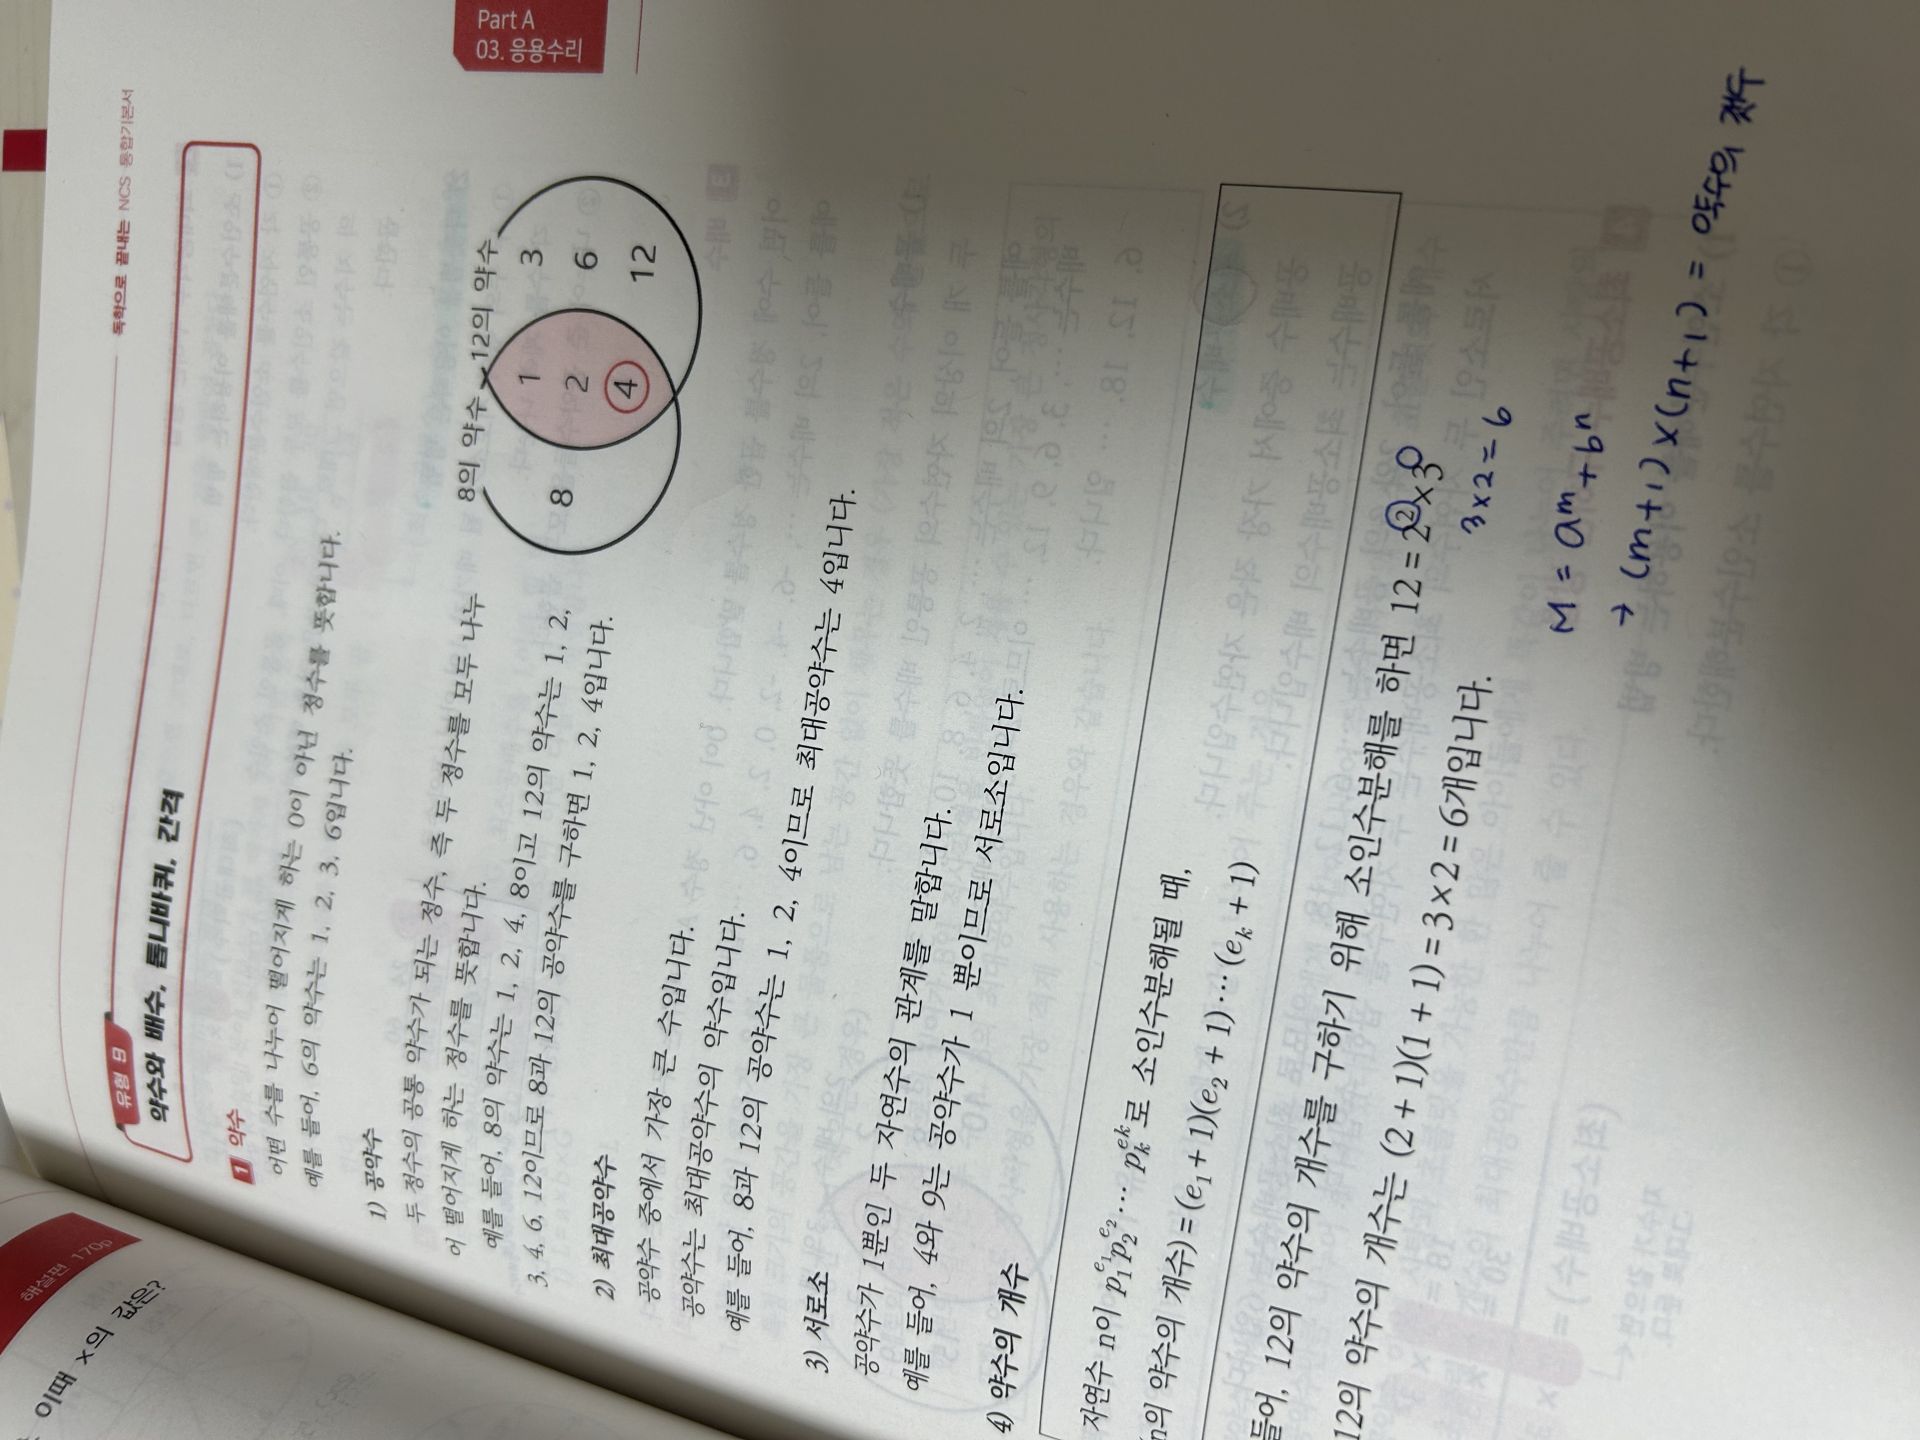 해설편 170p
이때 x의 값은?
독학으로 끝내는 NCS 통합기본서
Part A
03. 응용수리
유형 9
약수와 배수, 톱니바퀴, 간격
1 약수
어떤 수를 나누어 떨어지게 하는 0이 아닌 정수를 뜻합니다.
예를 들어, 6의 약수는 1, 2, 3, 6입니다.
1) 공약수
두 정수의 공통 약수가 되는 정수, 즉 두 정수를 모두 나누
어 떨어지게 하는 정수를 뜻합니다.
예를 들어, 8의 약수는 1, 2, 4, 8이고 12의 약수는 1, 2,
3, 4, 6, 12이므로 8과 12의 공약수를 구하면 1, 2, 4입니다.
8의 약수 12의 약수
8
1
2
4
3
6
12
2) 최대공약수
공약수 중에서 가장 큰 수입니다.
공약수는 최대공약수의 약수입니다.
예를 들어, 8과 12의 공약수는 1, 2, 4이므로 최대공약수는 4입니다.
3) 서로소
공약수가 1뿐인 두 자연수의 관계를 말합니다.
예를 들어, 4와 9는 공약수가 1 뿐이므로 서로소입니다.
4) 약수의 개수
자연수 n이 p₁^e₁ p₂^e₂ … pₖ^ek로 소인수분해될 때,
(n의 약수의 개수) = (e₁ + 1)(e₂ + 1) … (eₖ + 1)
들어, 12의 약수의 개수를 구하기 위해 소인수분해를 하면 12 = 2² × 3
12의 약수의 개수는 (2 + 1)(1 + 1) = 3 × 2 = 6개입니다.
3 x 2 = 6
M = aᵐ + bⁿ
→ (m+1) x (n+1) = 약수의 갯수